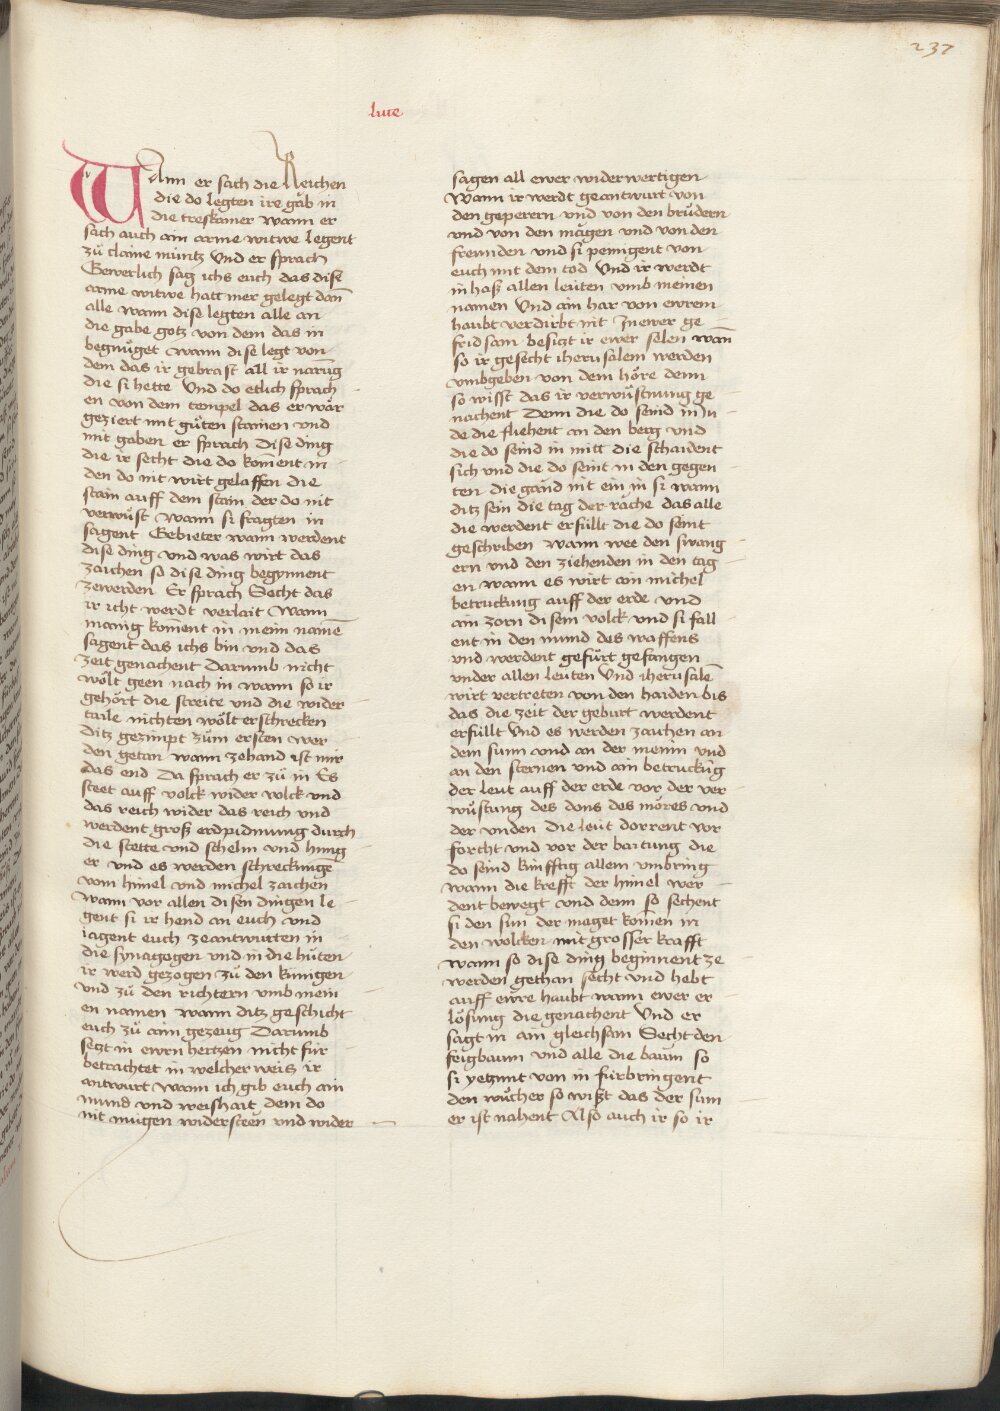 237
luce
Wann er sach die Reichen
die do legten ire gab in
die treskamer wann er
sach auch ain arme witwe legent
zů claine müntz Vnd er sprach
Gewerlich sag ichs euch das dise
arme witwe hatt mer gelegt dañ
alle wann dise legten alle an
die gabe gotz von dem das in
begnuͤget wann dise legt von
dem das ir gebrast all ir narũg
die si hette Vnd do etlich sprach
en von dem tempel das er waͤr
geziert mit guͤten stainen vnd
mit gaben er sprach Dise ding
die ir secht die do koment in
den do nit wirt gelassen die
stain auff dem stain der do nit
verwuͤst wann si fragten in
sagent Gebieter wann werdent
dise ding vnd was wirt das
zaichen so dise ding begynnent
zewerden Er sprach Secht das
ir icht werdt verlait Wann
manig koment in mein namẽ
sagent das ichs bin vnd das
zeit genachent Darumb nicht
woͤlt geen nach in wann so ir
gehoͤrt die streite vnd die wider
taile nichten woͤlt erschrecken
ditz gezimpt zům ersten wer
den getan wann zehand ist nit
das end Da sprach er zů in Es
steet auff volck wider volck vnd
das reich wider das reich vnd
werdent groß erdpidmung durch
die stette vnd schelm vnd hung
er vnd es werden schreckungẽ
vom himel vnd michel zaichen
wann vor allen disen dingen le
gent si ir hend an euch vnd
iagent euch zeantwurten in
die synagogen vnd in die hůten
ir werd gezogen zů den künigen
vnd zů den richtern vmb mein
en namen wann ditz geschicht
euch zů aim gezeug Darumb
setzt in ewrn hertzen nicht für
betrachtet in welcher weis ir
antwurt wann ich gib euch ain
mund vnd weishait dem do
nit mügen widersteen vnd wider
sagen all ewer widerwertigen
Wann ir werdt geantwurt von
den geperern vnd von den bruͤdern
vnd von den magen vnd von den
freunden vnd si peinigent von
euch mit dem tod Vnd ir werdt
in haß allen leüten vmb meinen
namen Vnd ain har von ewrem
haubt verdirbt nit In ewer ge
fridsam besitzt ir ewer selen wañ
so ir gesecht iherusalem werden
vmbgeben von dem hoͤre denn
so wisst das ir verwuͤstnung ge
nachent Denn die do seind in Ju
de die fliehent an den berg vnd
die do seind in mitt die schaident
sich vnd die do seint in den gegen
ten die gaͤnd nit ein in si wann
ditz sein die tag der rache das alle
die werdent erfüllt die do seint
geschriben wann wee den swang
ern vnd den ziehenden in den tag
en wann es wirt ain michel
betruckung auff der erde vnd
ain zorn disem volck vnd si fall
ent in den mund des waffens
vnd werdent gefuͤrt gefangen
vnder allen leuten Vnd iherusalẽ
wirt vertreten von den haiden bis
das die zeit der geburt werdent
erfüllt Vnd es werden zaichen an
dem sunn vnd an der menin vnd
an den sternen vnd ain betruckũg
der leut auff der erde vor der ver
wuͤstung des dons des moͤres vnd
der vnden die leut dorrent vor
forcht vnd vor der baitung die
do seind kunfftig allem vmbring
wann die krefft der himel wer
dent bewegt vnd denn so sechent
si den sun der maget komen in
den wolcken mit grosser krafft
wann so dise ding beginnent ze
werden gethan secht vnd hebt
auff ewre haubt wann ewer er
loͤsung die genachent Vnd er
sagt in ain gleichsam Secht den
feigbaum vnd alle die baum so
si yetzunt von in fürbringent
den wuͤcher so wißt das der sum
er ist nahent Also auch ir so ir